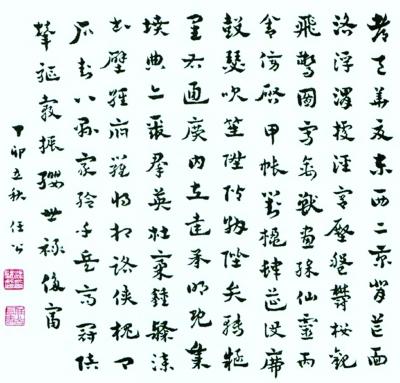 都邑華夏東西二京背邙面
洛浮渭據涇宮殿盤鬱樓觀
飛驚圖寫禽獸畫彩仙靈丙
舍傍啟甲帳對楹肆筵設席
鼓瑟吹笙陞階納陛弁轉疑
星右通廣內左達承明既集
墳典亦聚群英杜稿鍾隸漆
書壁經府羅將相路俠槐卿
戶封八縣家給千兵高冠陪
輦驅轂振纓世祿侈富
丁卯立秋 任公